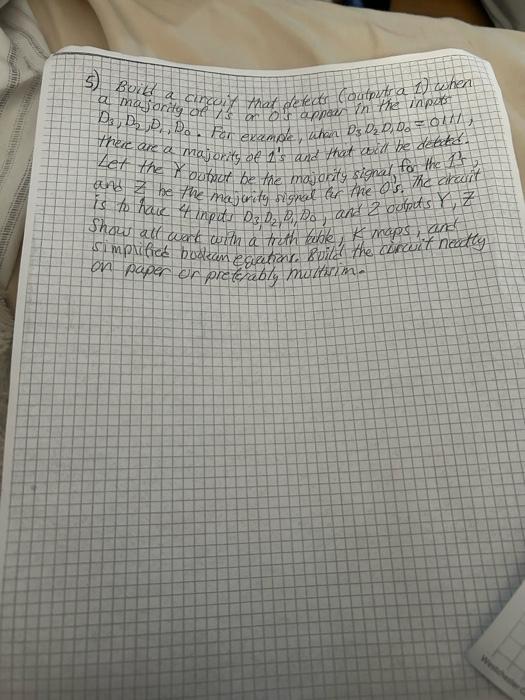 5) Build a circuit that detects (outputs a 1) when
a majority of 1's or 0's appear in the inputs
D3, D2, D1, D0. For example, when D3 D2 D1 D0 = 0111,
there are a majority of 1's and that will be detected.
Let the Y output be the majority signal for the 1's,
and Z be the majority signal for the 0's. The circuit
is to have 4 inputs D3, D2, D1, D0, and 2 outputs Y, Z
Show all work with a truth table, K maps, and
simplified boolean equations. Build the circuit neatly
on paper or preferably multisim.